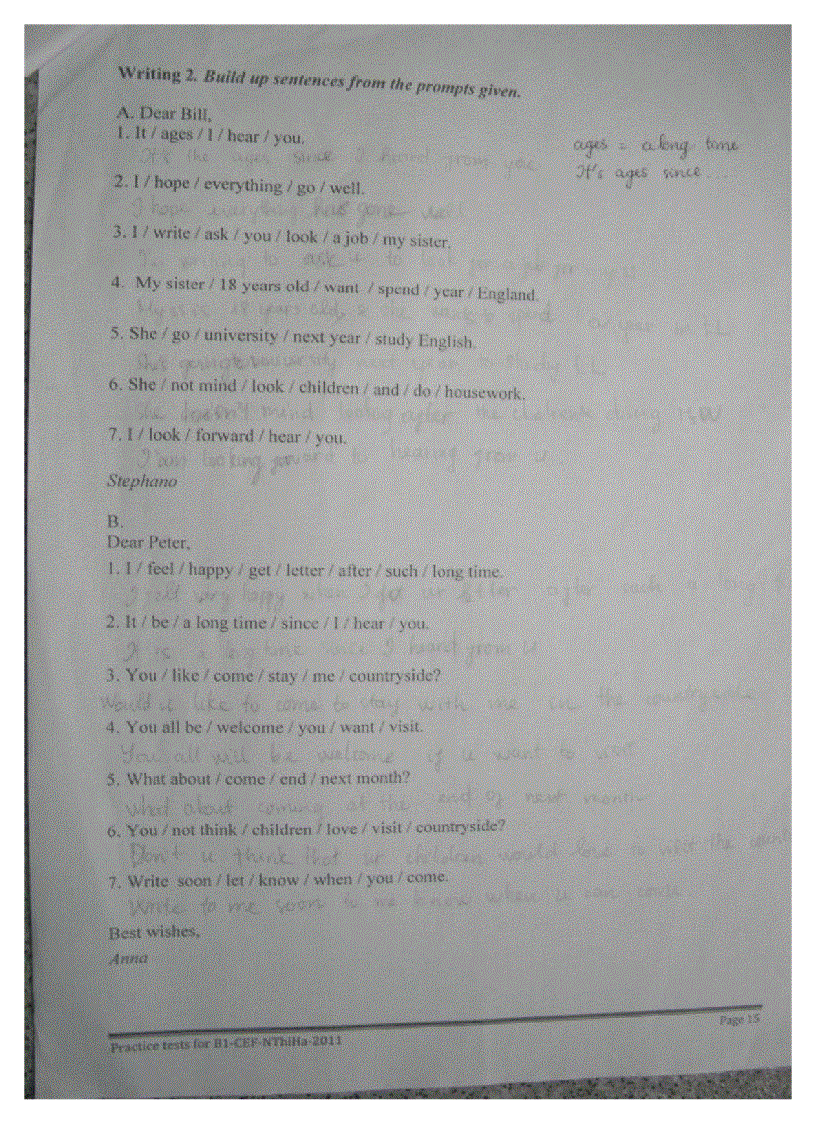 Writing 2. Build up sentences from the prompts given.
A. Dear Bill,
1. It / ages / I / hear / you.
It's the ages since I heard from you
ages = a long time
It's ages since ...
2. I / hope / everything / go / well.
I hope everything has gone well
3. I / write / ask / you / look / a job / my sister.
I'm writing to ask u to look for a job for my
4. My sister / 18 years old / want / spend / year / England.
My sis 18 years old, she
5. She / go / university / next year / study English.
She's going to university next to study
6. She / not mind / look / children / and / do / housework.
She doesn't mind looking after the doing
7. I / look / forward / hear / you.
I am looking forward to hearing from u.
Stephano
B.
Dear Peter,
1. I / feel / happy / get / letter / after / such / long time.
I felt very happy when I got ur letter after such a long
2. It / be / a long time / since / I / hear / you.
It is a long time since I heard from u
3. You / like / come / stay / me / countryside?
Would u like to come to stay with me in the countryside
4. You all be / welcome / you / want / visit.
You all will be welcome if u want to visit
5. What about / come / end / next month?
What about coming at the end of next month
6. You / not think / children / love / visit / countryside?
Don't u think that ur children would love to visit the
7. Write soon / let / know / when / you / come.
Write to me soon to me know when u can come
Best wishes,
Anna
Practice tests for B1-CEF-NThiHa-2011
Page 15